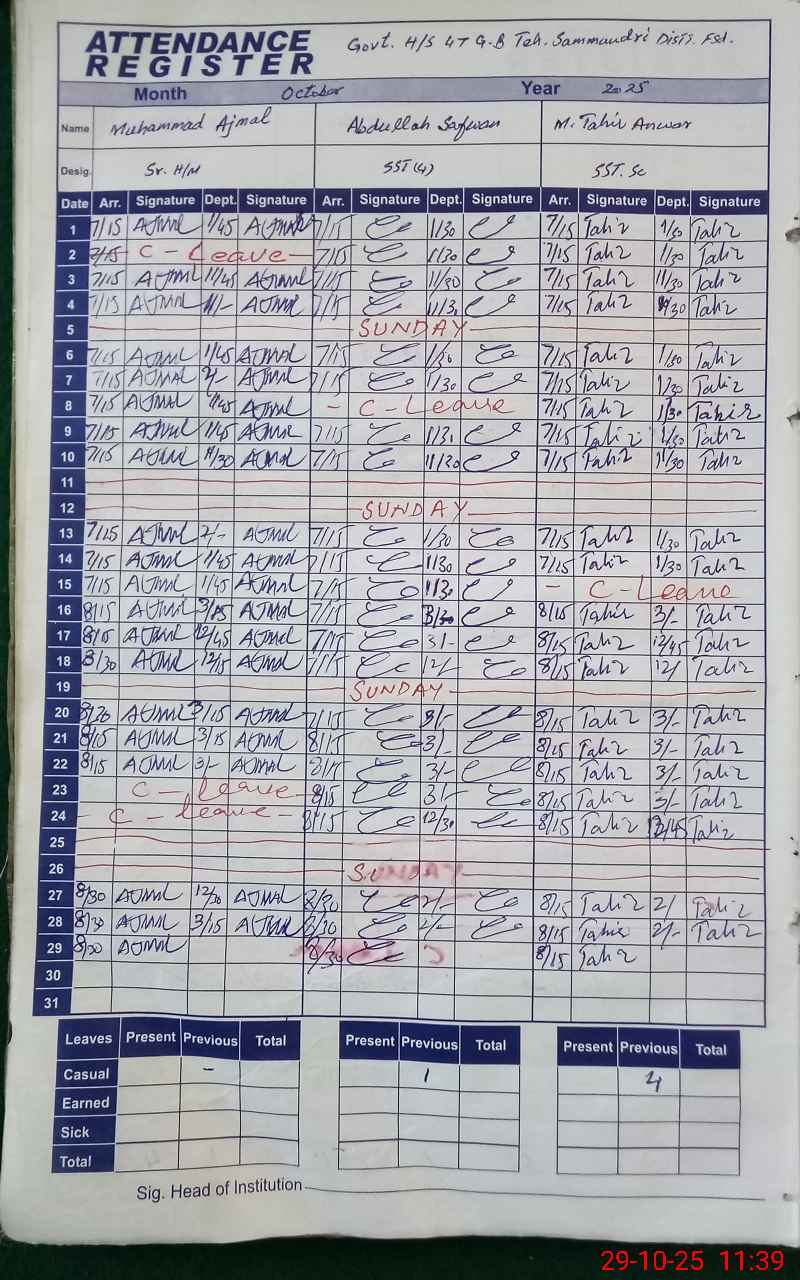 ATTENDANCE REGISTER
Govt. H/S 47 G.B Teh. Sammundri Distt. Fsd.
Month October Year 2025
Name Muhammad Ajmal Abdullah Safwan M. Tahir Anwar
Desig. Sr. H/M SST (4) SST. Sc
Date Arr. Signature Dept. Signature Arr. Signature Dept. Signature Arr. Signature Dept. Signature
1 7/15 AJmal 1/45 AJmal 7/15 1/30 7/15 Tahir 1/30 Tahir
2 7/15 C - Leave 7/15 1/30 7/15 Tahir 1/30 Tahir
3 7/15 AJmal 11/45 AJmal 7/15 11/30 7/15 Tahir 11/30 Tahir
4 7/15 AJmal 11/- AJmal 7/15 11/30 7/15 Tahir 11/30 Tahir
5 SUNDAY
6 7/15 AJmal 1/45 AJmal 7/15 1/30 7/15 Tahir 1/30 Tahir
7 7/15 AJmal 2/- AJmal 7/15 1/30 7/15 Tahir 1/30 Tahir
8 7/15 AJmal 1/45 AJmal - C - Leave 7/15 Tahir 1/30 Tahir
9 7/15 AJmal 1/45 AJmal 7/15 1/30 7/15 Tahir 1/30 Tahir
10 7/15 AJmal 11/30 AJmal 7/15 11/30 7/15 Tahir 11/30 Tahir
11
12 SUNDAY
13 7/15 AJmal 2/- AJmal 7/15 1/30 7/15 Tahir 1/30 Tahir
14 7/15 AJmal 1/45 AJmal 7/15 1/30 7/15 Tahir 1/30 Tahir
15 7/15 AJmal 1/45 AJmal 7/15 1/30 - C - Leave
16 8/15 AJmal 3/15 AJmal 7/15 3/30 8/15 Tahir 3/- Tahir
17 8/15 AJmal 12/45 AJmal 7/15 3/- 8/15 Tahir 12/45 Tahir
18 8/30 AJmal 12/15 AJmal 7/15 12/- 8/15 Tahir 12/ Tahir
19 SUNDAY
20 8/20 AJmal 3/15 AJmal 7/15 8/15 Tahir 3/- Tahir
21 8/15 AJmal 3/15 AJmal 8/15 3/- 8/15 Tahir 3/- Tahir
22 8/15 AJmal 3/- AJmal 8/15 3/- 8/15 Tahir 3/- Tahir
23 C - Leave 8/15 3/- 8/15 Tahir 3/- Tahir
24 - C - Leave - 8/15 12/30 8/15 Tahir 12/45 Tahir
25
26 SUNDAY
27 8/30 AJmal 12/30 AJmal 8/30 2/- 8/15 Tahir 2/ Tahir
28 8/30 AJmal 3/15 AJmal 8/30 2/- 8/15 Tahir 2/- Tahir
29 8/30 AJmal 8/30 8/15 Tahir
30
31
Leaves Present Previous Total Present Previous Total Present Previous Total
Casual - 1 4
Earned
Sick
Total
Sig. Head of Institution
29-10-25 11:39